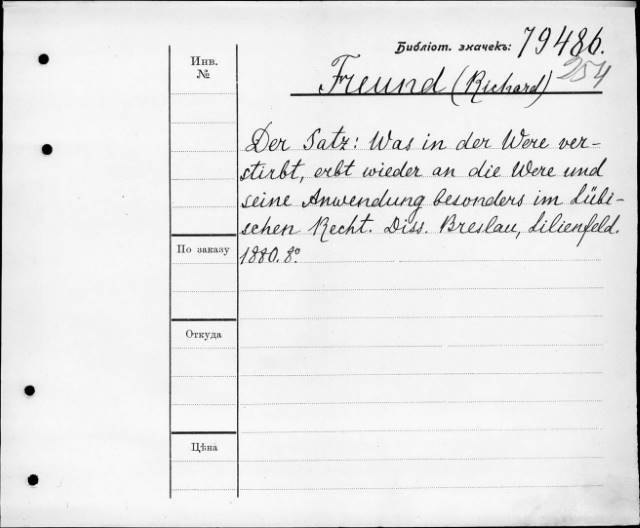 Библіот. значекъ: 79486.
254
Инв.
№
Freund (Richard)
Der Satz: Was in der Were ver-
stirbt, erbt wieder an die Were und
seine Anwendung besonders im Lübi-
schen Recht. Diss. Breslau, Lilienfeld.
По заказу
1880. 8°.
Откуда
Цѣна